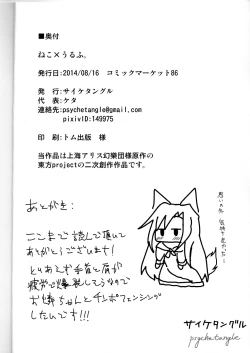 ■奥付
ねこ×うるふ。
発行日:2014/08/16 コミックマーケット86
発 行:サイケタングル
代 表:ケタ
連絡先:psychetangle@gmail.com
pixivID:149975
印 刷:トム出版 様
当作品は上海アリス幻樂団様原作の
東方projectの二次創作作品です。
あとがき:
ここまで読んで頂いて
ありがとうございます!
とりあえず手首と肩が
疲労で爆発してるので
お姉ちゃんとチンポフェンシング
したいです!!!
思いの外
サイケタングル
psychetangle